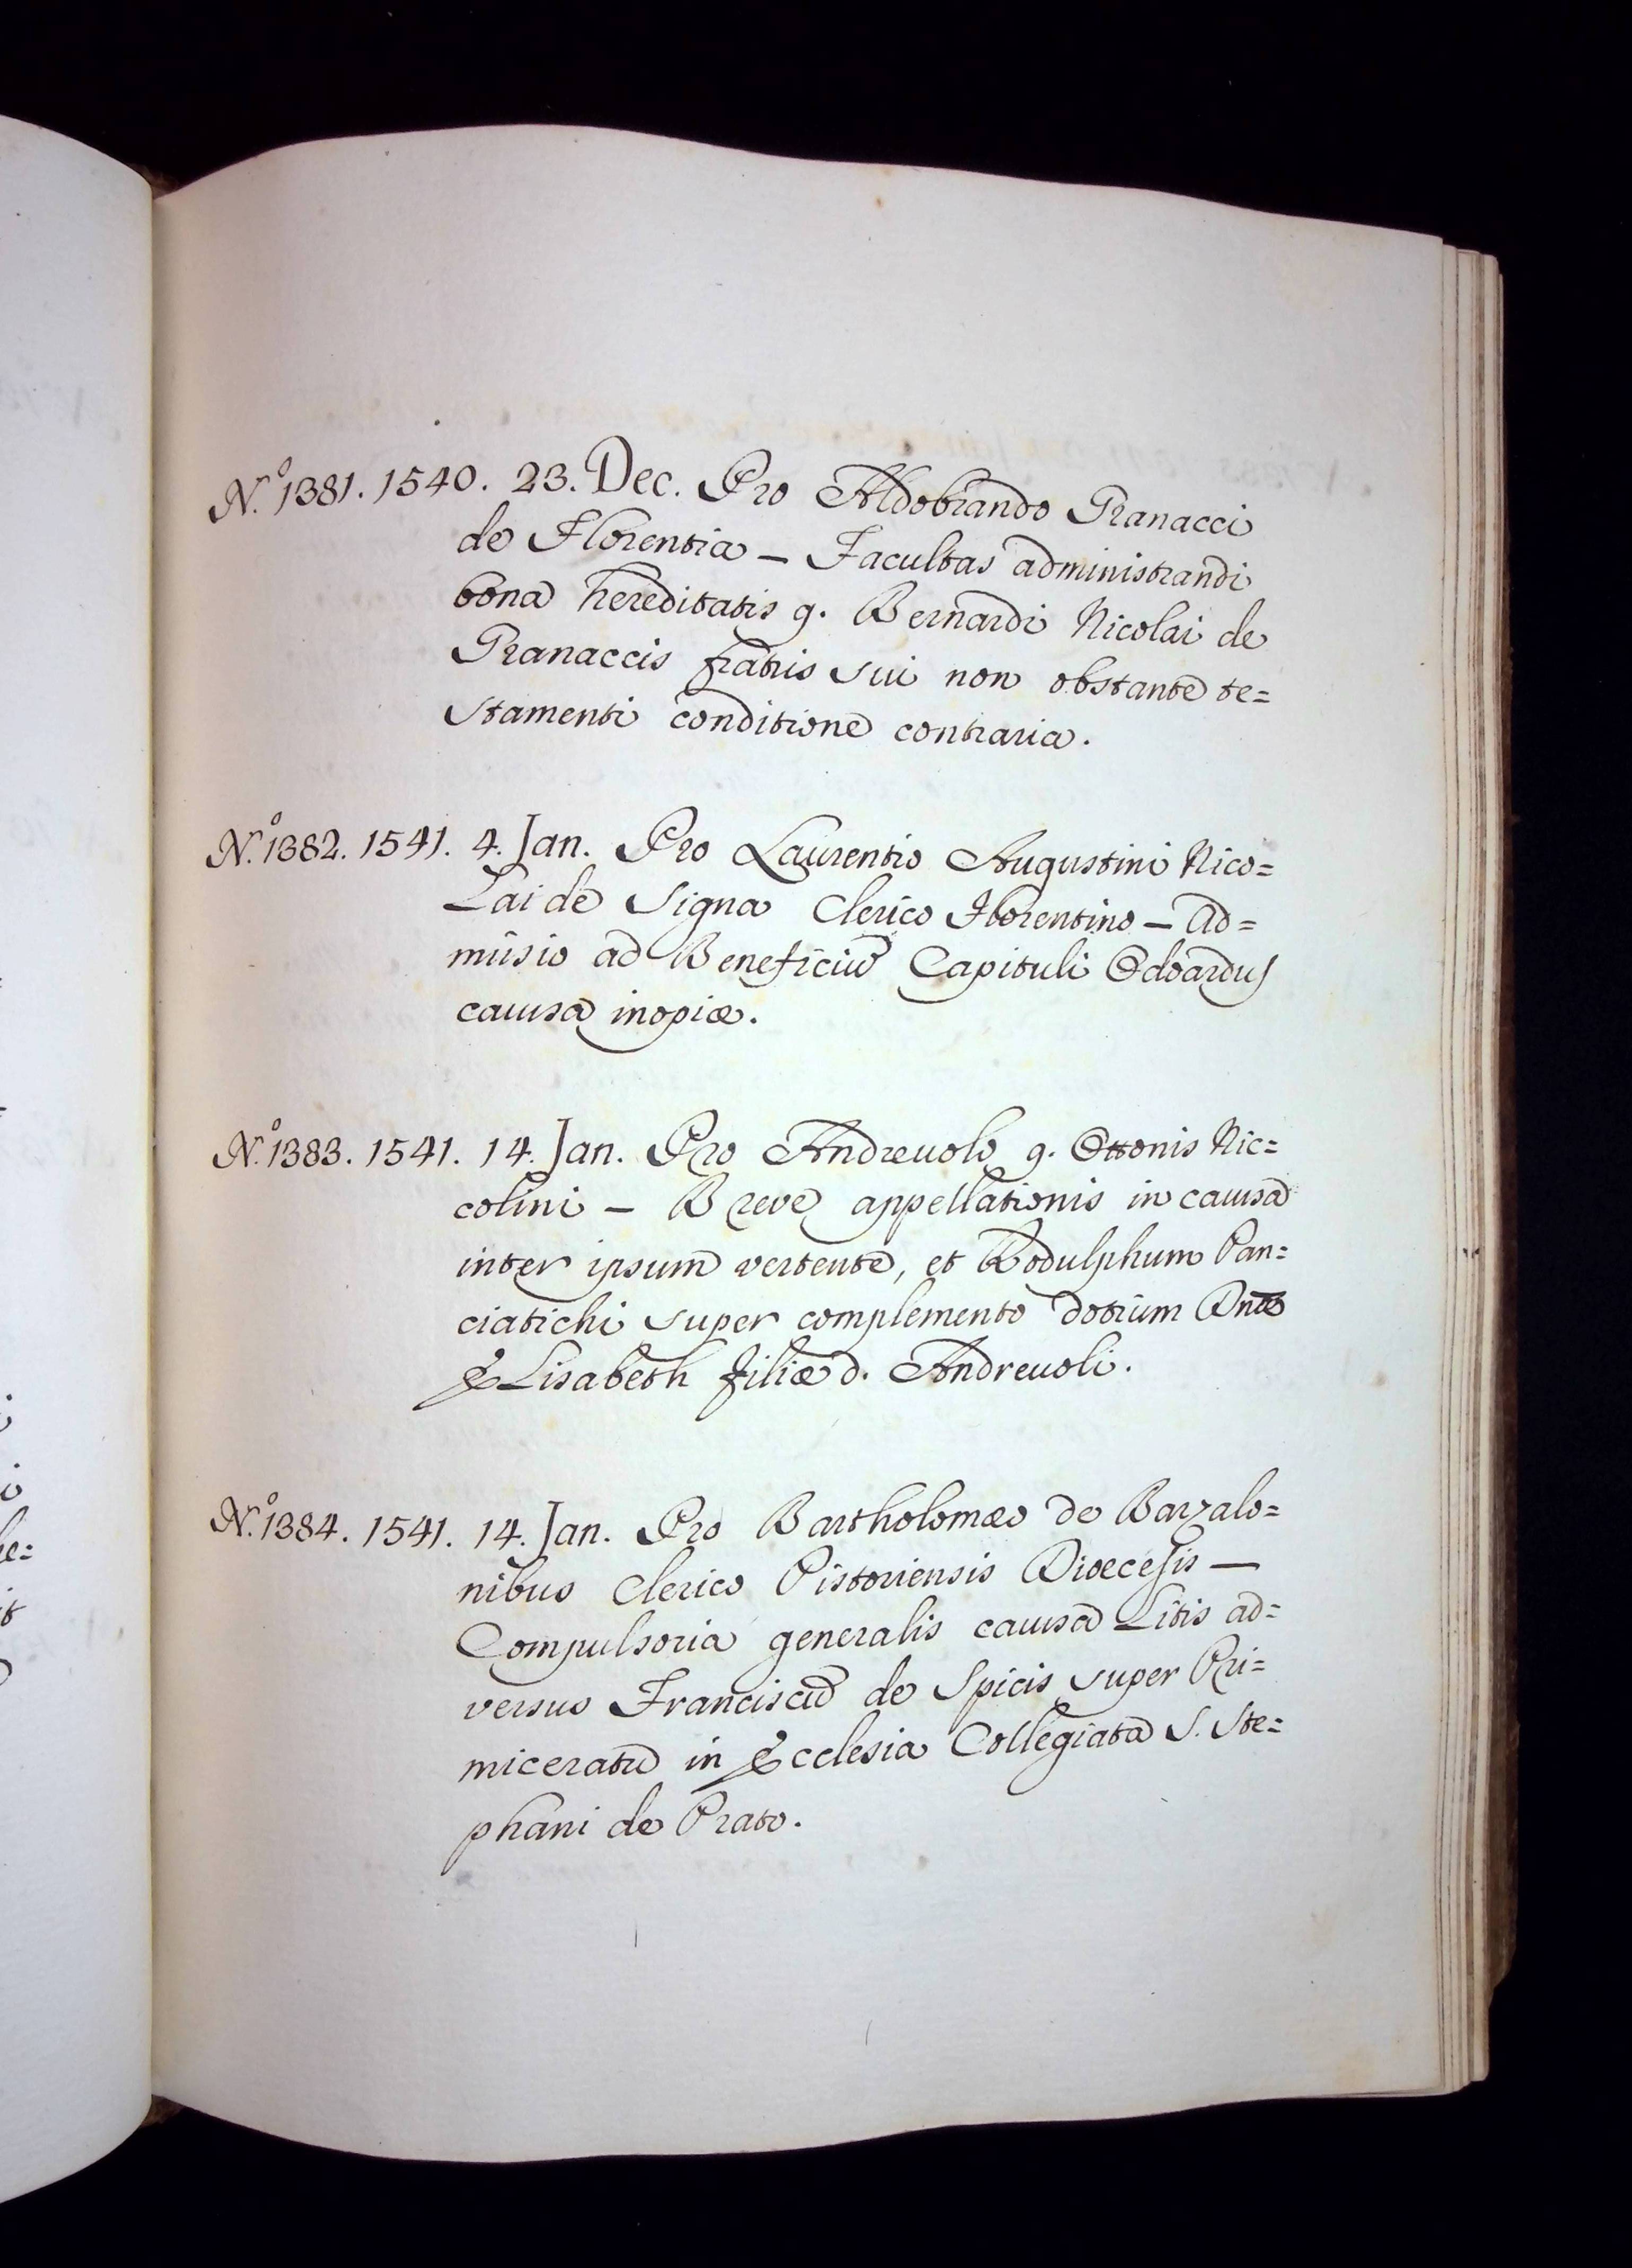 N.º 1381. 1540. 23. Dec. Pro Aldobrando Granacci
de Florentia — Facultas administrandi
bona hereditatis q. Bernardi Nicolai de
Granaccis fratris sui non obstante te=
stamenti conditione contraria.
N.º 1382. 1541. 4. Jan. Pro Laurentio Augustini Nico=
lai de Signa Clerico Florentino — Ad=
missio ad Beneficiũ Capituli Odoardus
causa inopiæ.
N.º 1383. 1541. 14. Jan. Pro Andreuolo q. Ottonis Nic=
colini — Breve appellationis in causa
inter ipsum vertente, et Rodulphum Pan=
ciatichi super complemento dotium Dnæ
Elisabeth filiæ d. Andreuoli.
N.º 1384. 1541. 14. Jan. Pro Bartholomæo de Barzalo=
nibus Clerico Pistoriensis Diœcesis —
Compulsoria generalis causa Litis ad=
versus Franciscũ de Spicis super Pri=
miceratu in Ecclesia Collegiata S. Ste=
phani de Prato.